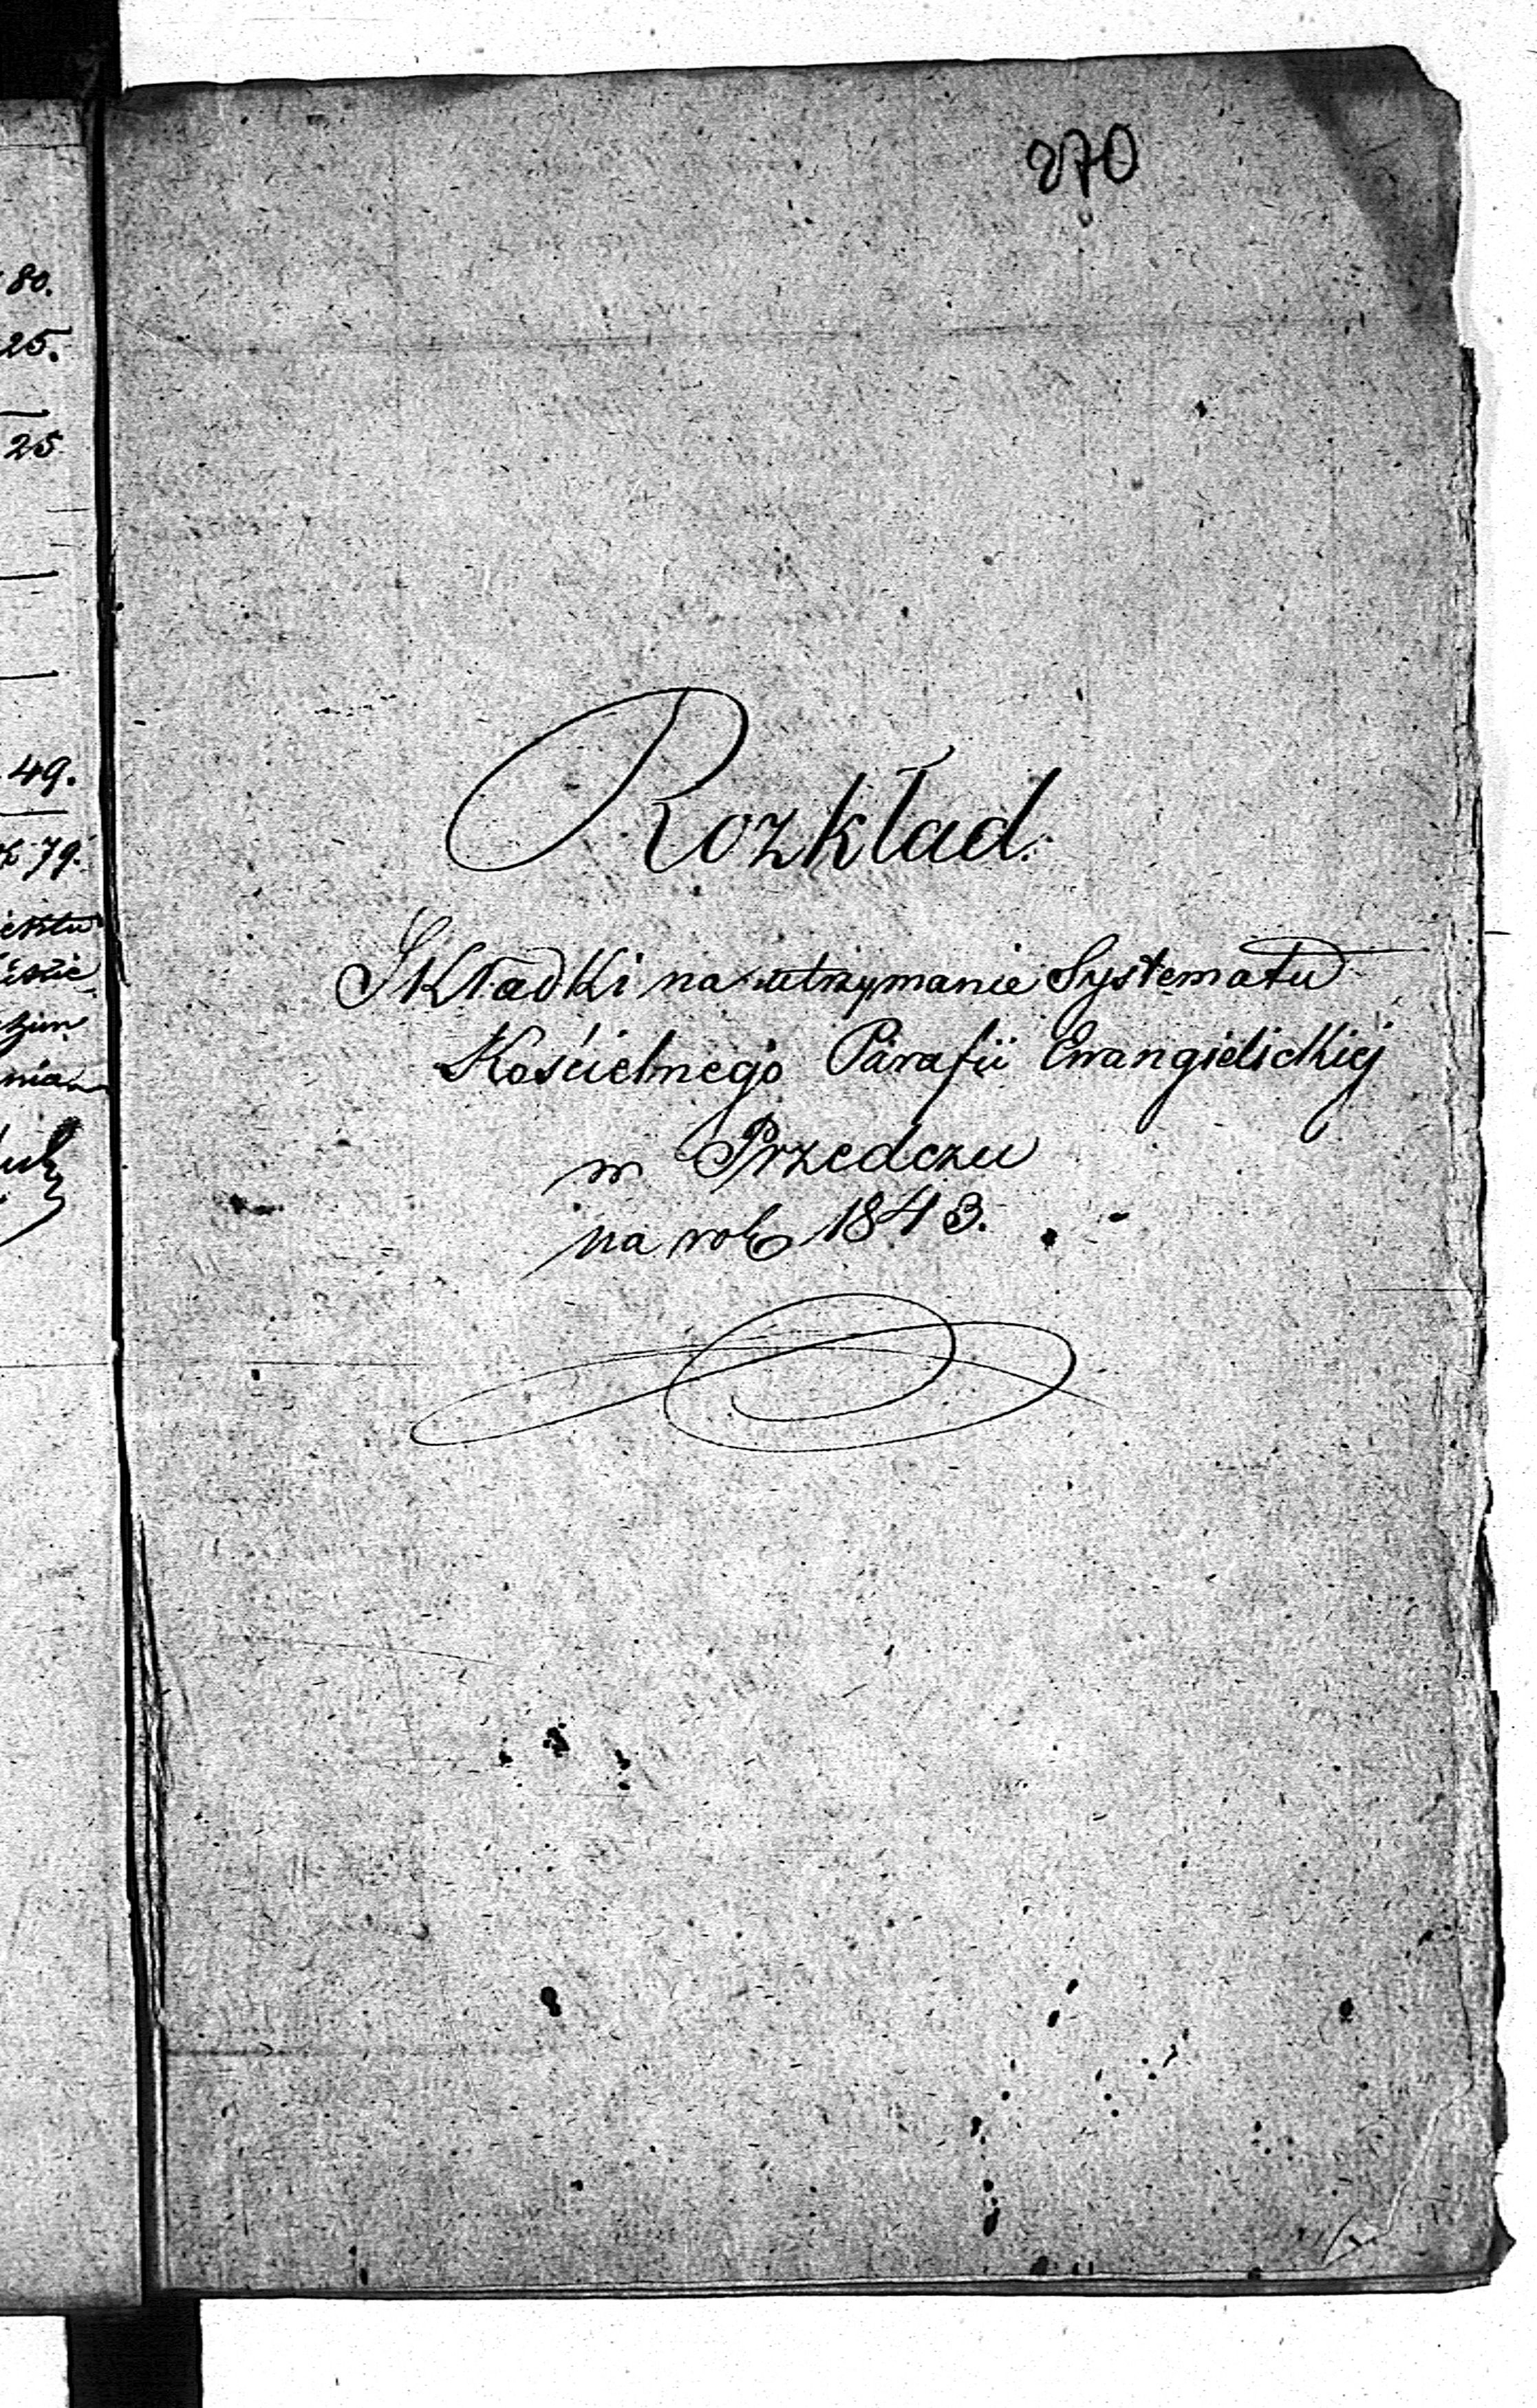 80.
25.
25
49.
79.
270
Rozkład
Składki na utrzymanie Systematu
Kościelnego Parafii Ewangielickiej
w Przedczu
na rok 1843.